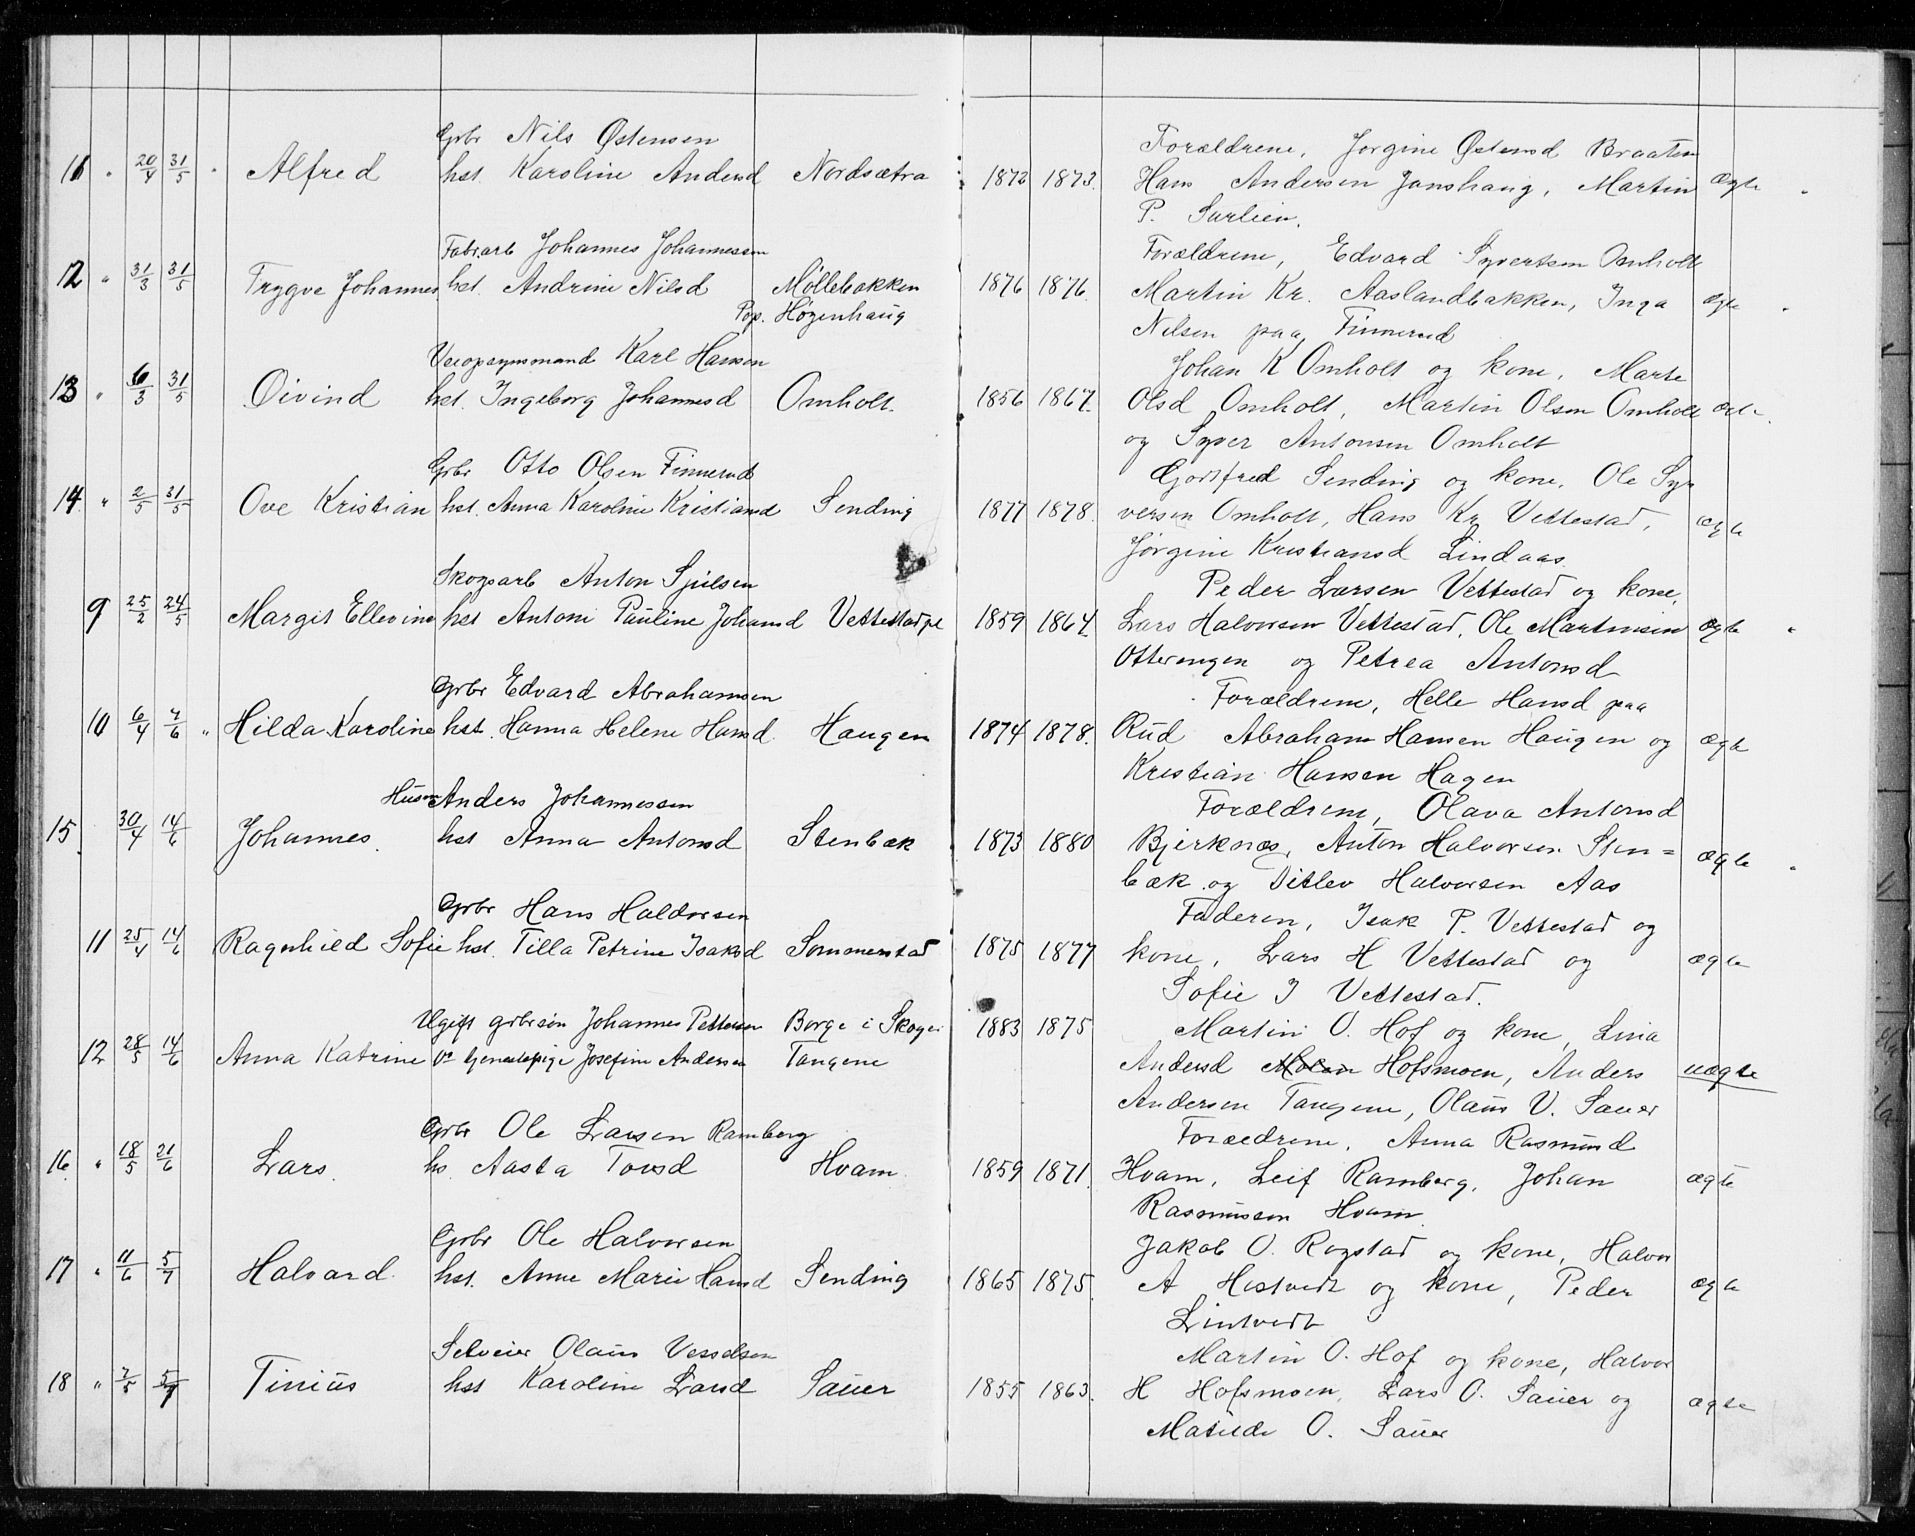 Grbr Nils Østensen
11 " 20/4 31/5 " Alfred hst. Karoline Andersd Nordsætra 1873 1873. ægte "
Forældrene, Jørgine Østensd Braaten
Hans Andersen Janshaug, Martin
P. Surlien.
Fabr.arb Johannes Johannessen
12 " 31/3 31/5 Trygve Johannes hst. Andrine Nilsd Møllebakken 1876 1876. ægte "
Pop. Høgenhaug
Forældrene, Edvard Syvertsen Omholt
Martin Kr. Aaslandbakken, Inga
Nilsen paa Finnerud
Veiopsynsmand Karl Hansen
13 " 6/3 31/5 Øivind hst. Ingeborg Johannesd Omholt. 1856 1867. ægte
Johan K Omholt og kone, Marte
Olsd Omholt, Martin Olsen Omholt
og Syver Antonsen Omholt
Grbr Otto Olsen Finnerud
14 " 2/5 31/5 Ove Kristian hst. Anna Karoline Kristiansd Sending 1877 1878. ægte
Godtfred Sending og kone, Ole Sy-
versen Omholt, Hans Kr Vettestad,
Jørgine Kristiansd Lindaas.
Skogsarb Anton Sjulsen
9 25/2 24/5 Margit Ellevine hst Antoni Pauline Johansd Vettestadpl 1859 1864. ægte "
Peder Larsen Vettestad og kone,
Lars Halvorsen Vettestad, Ole Martinsen
Otterengen og Petrea Antonsd
Grbr Edvard Abrahamsen
10 6/4 7/6 " Hilda Karoline hst. Hanna Helene Hansd. Haugen 1874 1878. ægte
Forældrene, Helle Hansd paa
Rud Abraham Hansen Haugen og
Kristian Hansen Hagen
Husm Anders Johannessen
15 30/4 14/6 Johannes. hst Anna Antonsd Stenbæk 1873 1880 ægte "
Forældrene, Olava Antonsd
Bjerknæs, Anton Halvorsen Sten=
bæk og Ditlev Halvorsen Aas
Grbr Hans Haldorsen
11 25/4 14/6 Ragnhild Sofie hst. Tilla Petrine Isaksd Sommerstad 1875 1877 ægte
Faderen, Isak P. Vettestad og
kone, Lars H Vettestad og
Sofie I Vettestad.
Ugift grbrsøn Johannes Pettersen Borge i Skoger 1883 1875
12 28/5 14/6 Anna Katrine og tjenestepige Josefine Andersen Tangene uægte
Martin O. Hof og kone, Lina
Andersd Hofsmoen, Anders
Andersen Tangene, Olaus V. Sauer
Grbr Ole Larsen Ramberg
16 " 18/5 21/6 Lars. hs. Aasta Torsd Hvam. 1859 1871. ægte
Forældrene, Anna Rasmusd
Hvam, Leif Ramberg, Johan
Rasmussen Hvam.
Grbr Ole Halvorsen
17 " 11/6 5/7 Halvard. hst. Anne Marie Hansd Sending 1865 1875. ægte
Jakob O. Rogstad og kone, Halvor
A Hestvedt og kone, Peder
Lintvedt
Selveier Olaus Vesselsen
18 " 7/5 5/7 Tinius hst Karoline Larsd Sauer 1855 1863. ægte
Martin O. Hof og kone, Halvor
H Hofsmoen, Lars O. Sauer og
Matilde O. Sauer